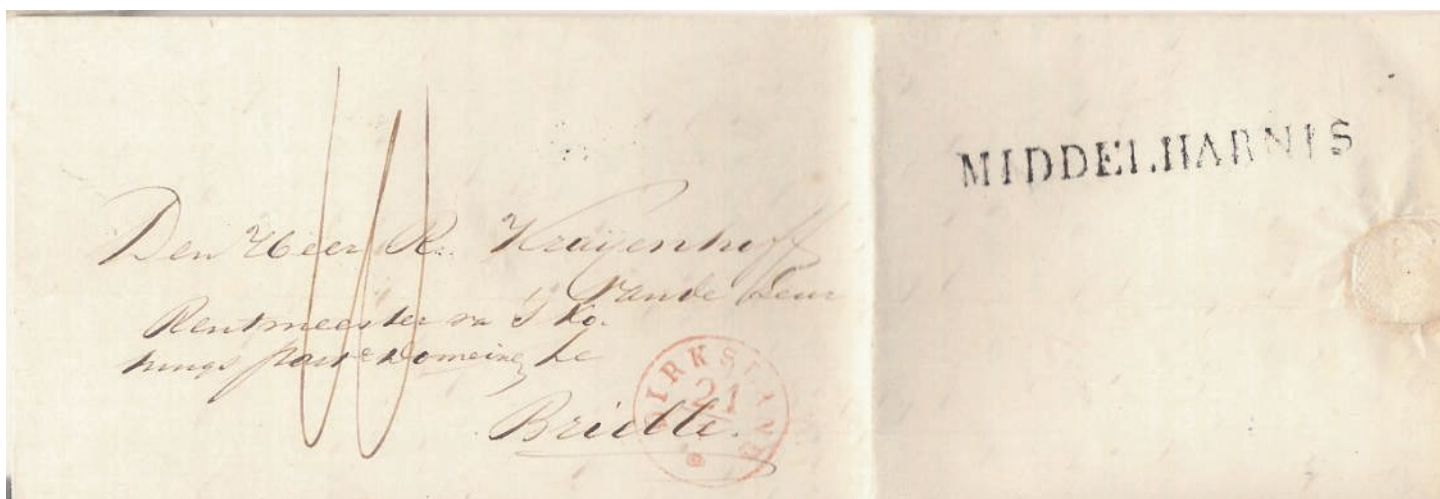 Den Heer R. Kraijenhoff
van de Leur
Rentmeester van 's Ko-
nings part. Domeinen te
Brielle.
DIRKSLAND
21
MIDDELHARNIS